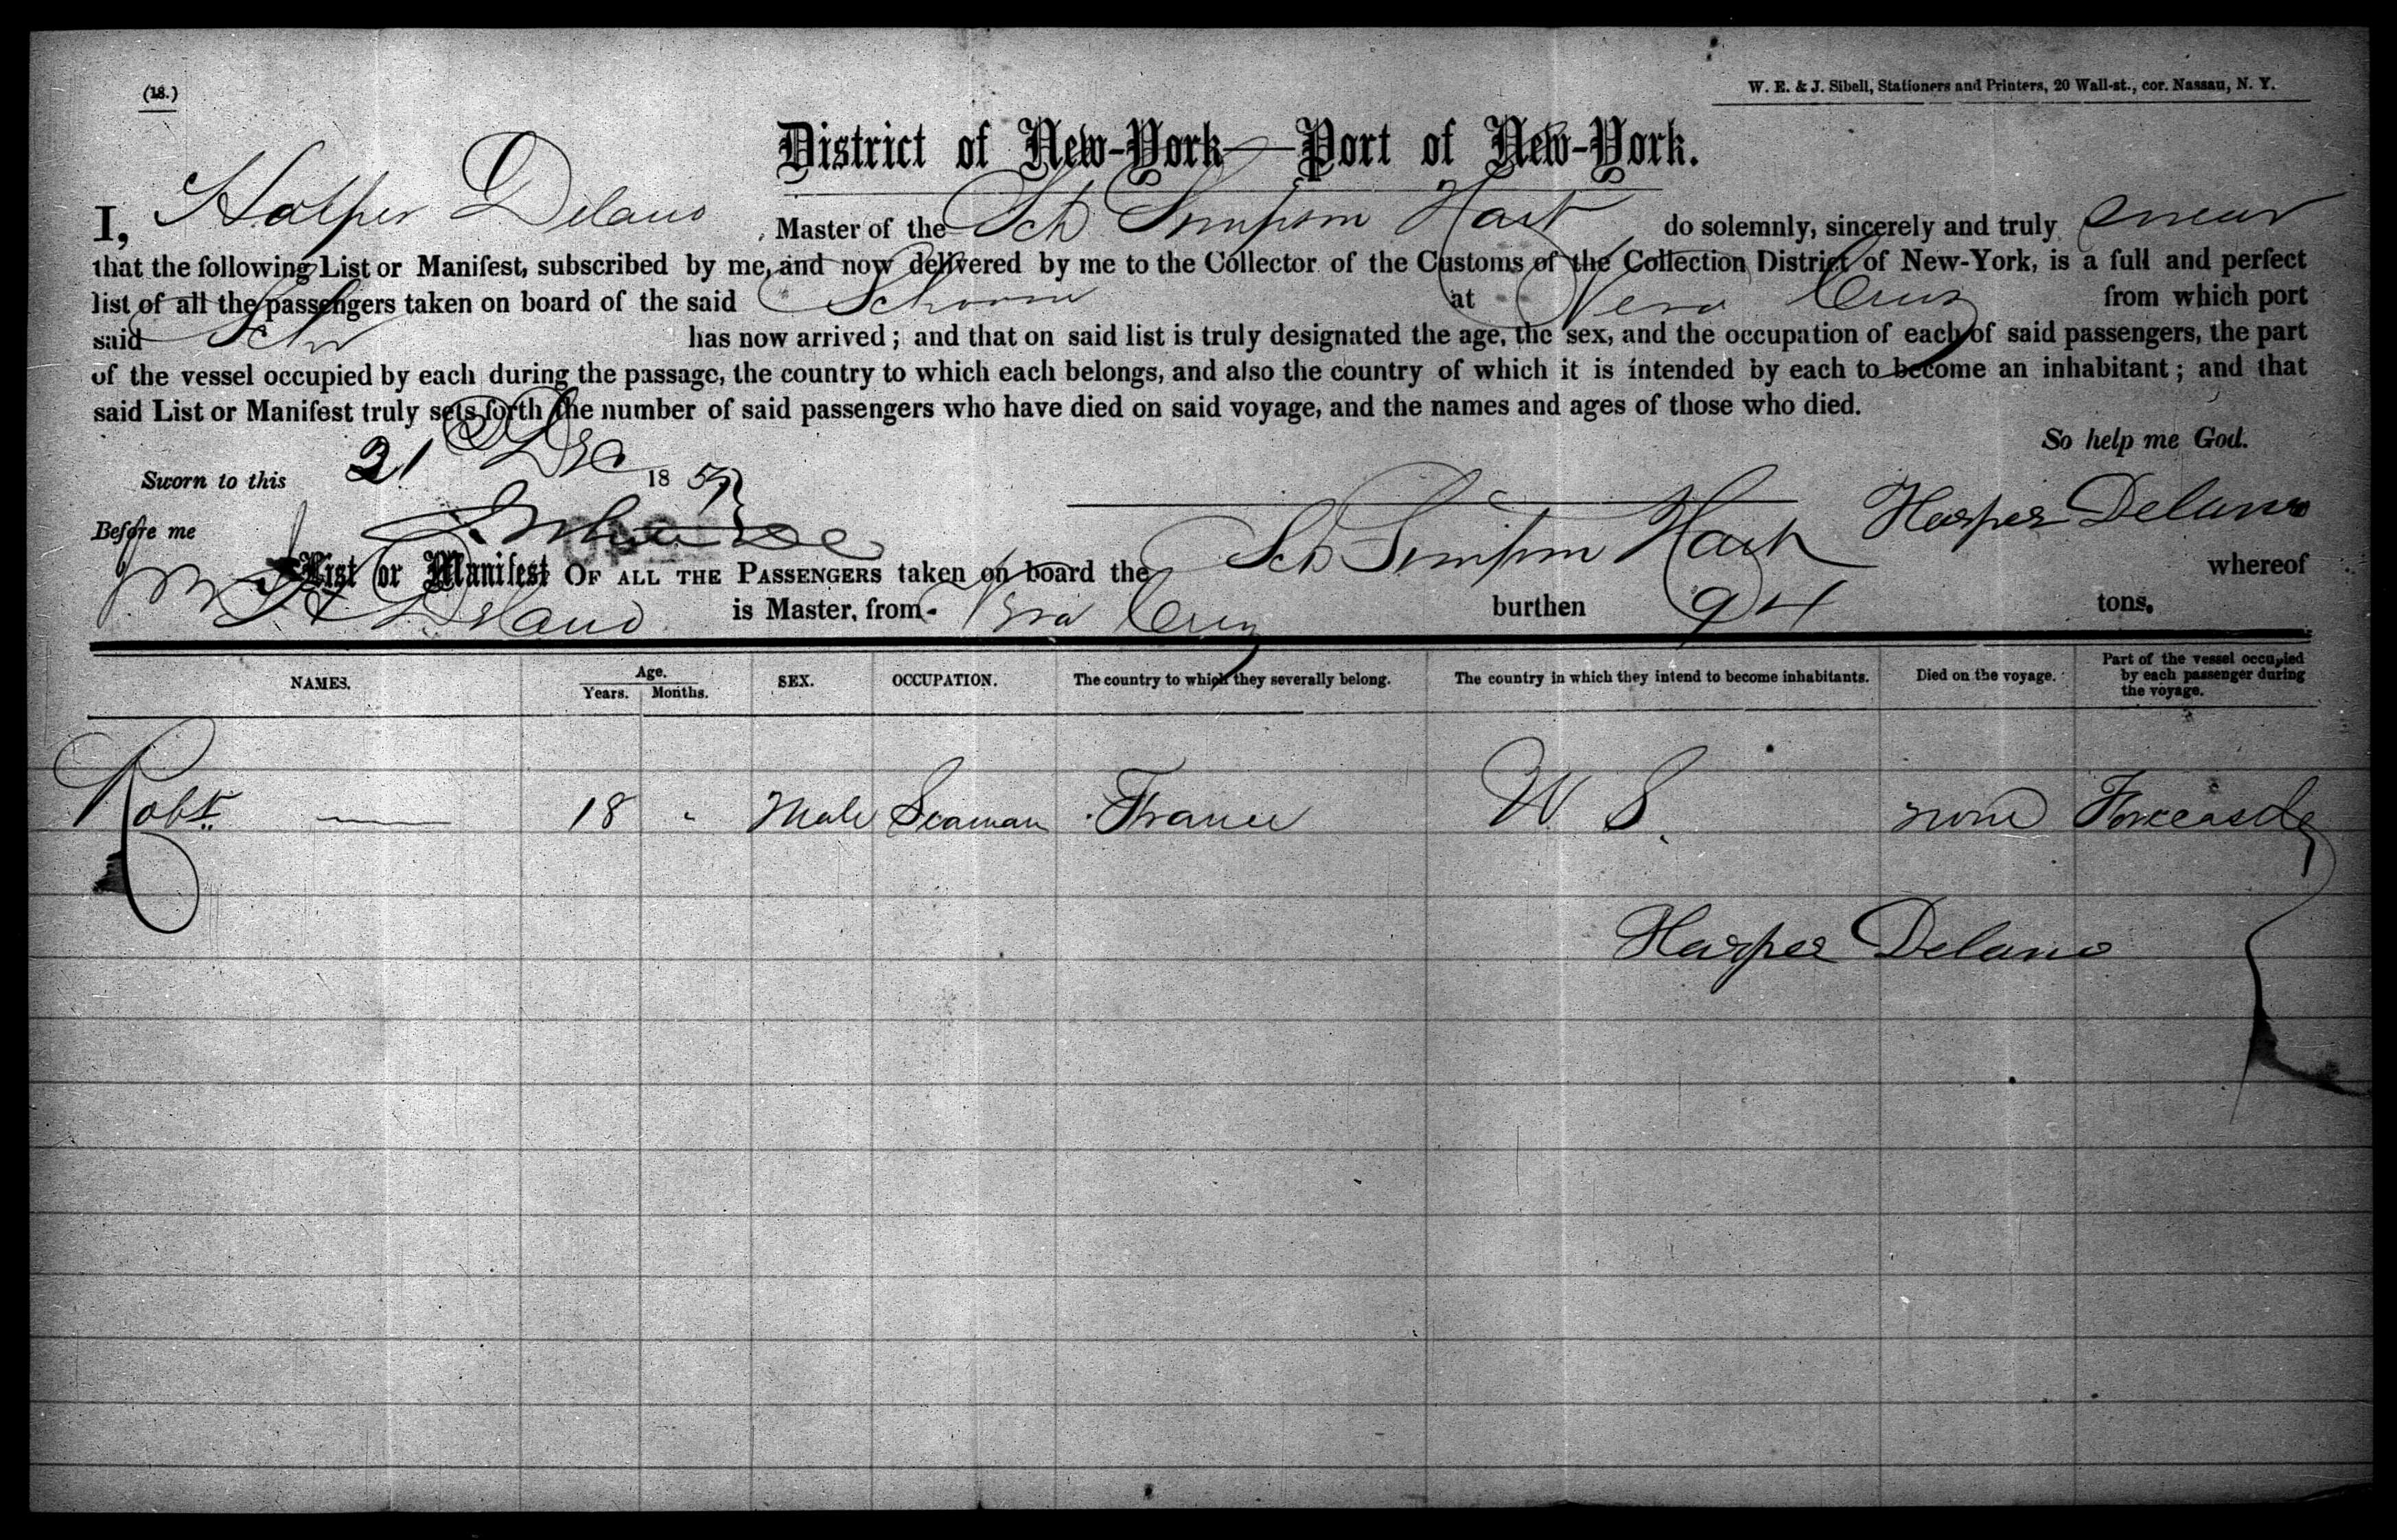 (18.)
W. E. & J. Sibell, Stationers and Printers, 20 Wall-st., cor. Nassau, N. Y.
District of New-York—Port of New-York.
I, Harper Delano Master of the Sch Simpson Hart do solemnly, sincerely and truly swear
that the following List or Manifest, subscribed by me, and now delivered by me to the Collector of the Customs of the Collection District of New-York, is a full and perfect
list of all the passengers taken on board of the said Schooner at Vera Cruz from which port
said Schr has now arrived; and that on said list is truly designated the age, the sex, and the occupation of each of said passengers, the part
of the vessel occupied by each during the passage, the country to which each belongs, and also the country of which it is intended by each to become an inhabitant; and that
said List or Manifest truly sets forth the number of said passengers who have died on said voyage, and the names and ages of those who died.
So help me God.
Sworn to this 21 Dec 1857
Before me Harper Delano
List or Manifest OF ALL THE PASSENGERS taken on board the Sch Simpson Hart whereof
Delano is Master, from Vera Cruz burthen 94 tons.
NAMES. Age. Years. Months. SEX. OCCUPATION. The country to which they severally belong. The country in which they intend to become inhabitants. Died on the voyage. Part of the vessel occupied by each passenger during the voyage.
Robt — 18 " Male Seaman France U. S. none Forecastle
Harper Delano